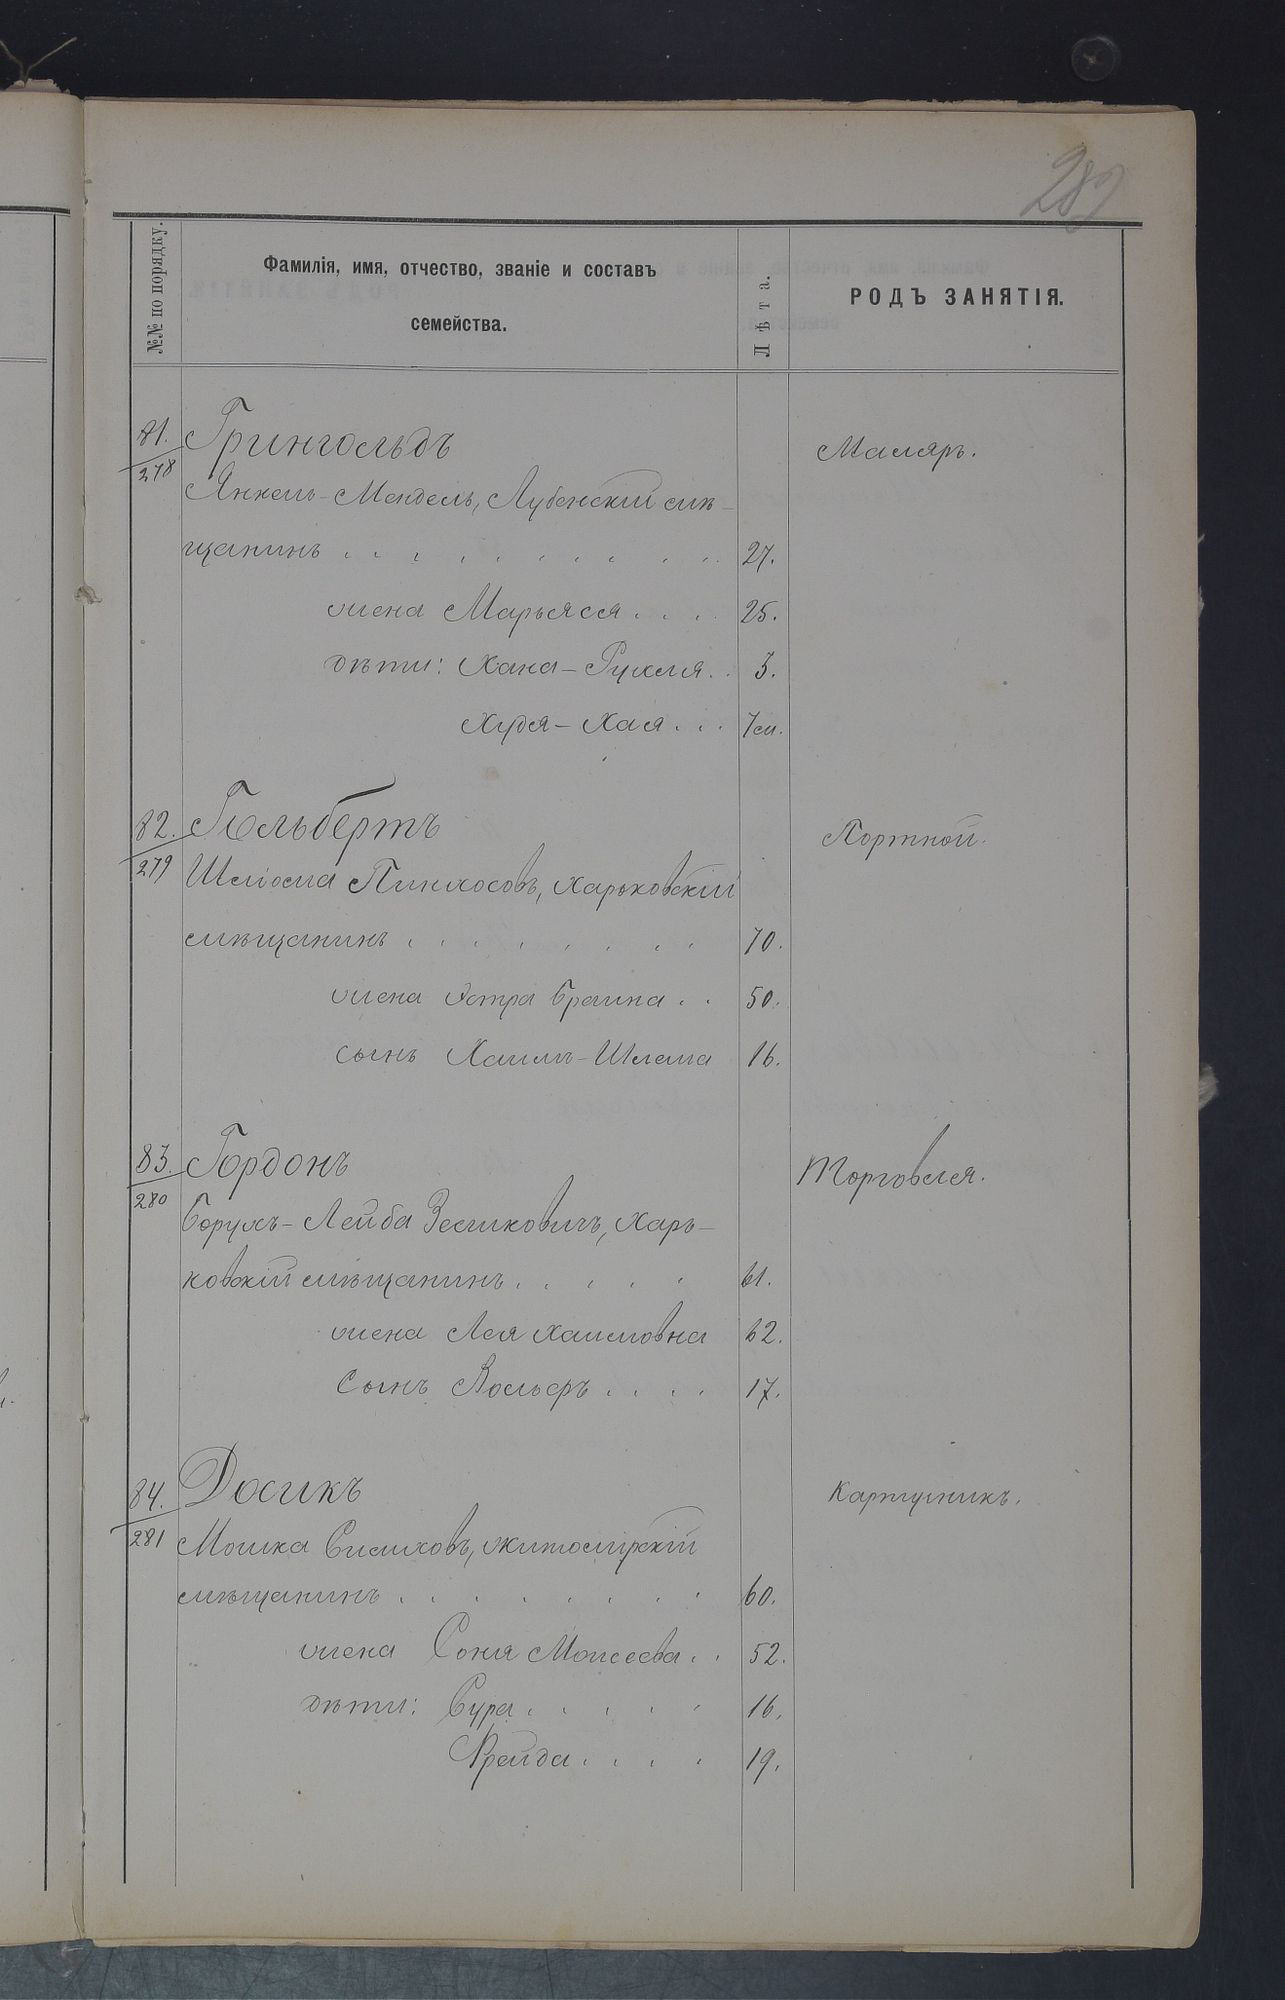 289
№№ по порядку.
Фамилія, имя, отчество, званіе и составъ
семейства.
Лѣта.
РОДЪ ЗАНЯТІЯ.
81. Грингольдъ Маляръ.
278
Янкель-Мендель, Лубенскій мѣ-
щанинъ . . . . . . . . . . 27.
жена Марьяся . . . 25.
дѣти: Хана-Рухля . . 3.
Худя-Хая . . . 7 м.
82. Гольбертъ Портной.
279
Шліома Пинхосовъ, Харьковскій
мѣщанинъ . . . . . . . . 70.
жена Эстра Браина . . 50.
сынъ Хаимъ-Шлема 16.
83. Гордонъ Торговля.
280
Борухъ-Лейба Зесликовичъ, Харь-
ковскій мѣщанинъ . . . . . 61.
жена Лея Хаимовна 62.
сынъ Вольфъ . . . . 17.
84. Досикъ Картузникъ.
281
Мошка Симховъ, житомірскій
мѣщанинъ . . . . . . . . 60.
жена Соня Моисеева . . 52.
дѣти: Сура . . . . . 16.
Фрейда . . . . 19.